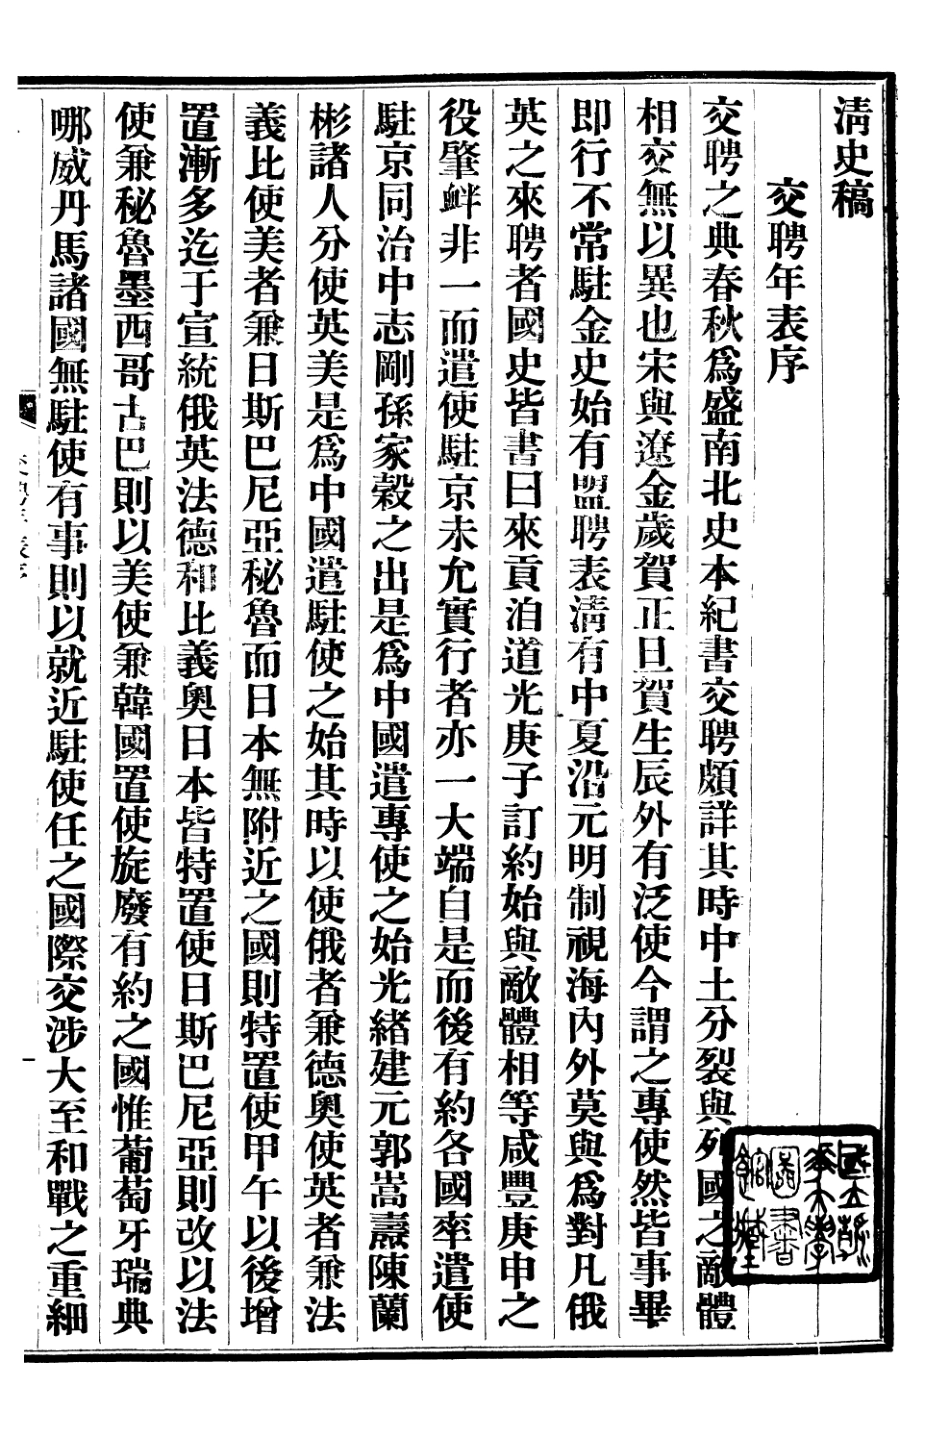 清史稿
交聘年表序
交聘之典春秋爲盛南北史本紀書交聘頗詳其時中土分裂與列國之敵體
相交無以異也宋與遼金歲賀正旦賀生辰外有泛使今謂之專使然皆事畢
即行不常駐金史始有盟聘表淸有中夏沿元明制視海內外莫與爲對凡俄
英之來聘者國史皆書曰來貢洎道光庚子訂約始與敵體相等咸豐庚申之
役肇衅非一而遣使駐京未允實行者亦一大端自是而後有約各國率遣使
駐京同治中志剛孫家穀之出是爲中國遣專使之始光緒建元郭嵩燾陳蘭
彬諸人分使英美是爲中國遣駐使之始其時以使俄者兼德奧使英者兼法
義比使美者兼日斯巴尼亞秘魯而日本無附近之國則特置使甲午以後增
置漸多迄于宣統俄英法德和比義奧日本皆特置使日斯巴尼亞則改以法
使兼秘魯墨西哥古巴則以美使兼韓國置使旋廢有約之國惟葡萄牙瑞典
哪威丹馬諸國無駐使有事則以就近駐使任之國際交涉大至和戰之重細
一